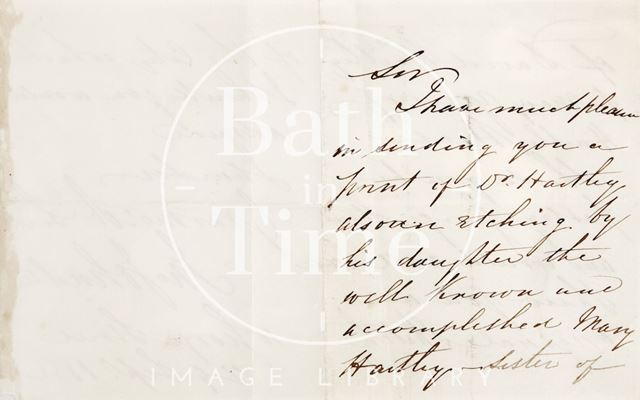 Sir
I have much pleasure
in sending you a
print of Dr. Hartley
also an etching by
his daughter the
well known and
accomplished Mary
Hartley - sister of
Bath
in
Time
IMAGE LIBRARY